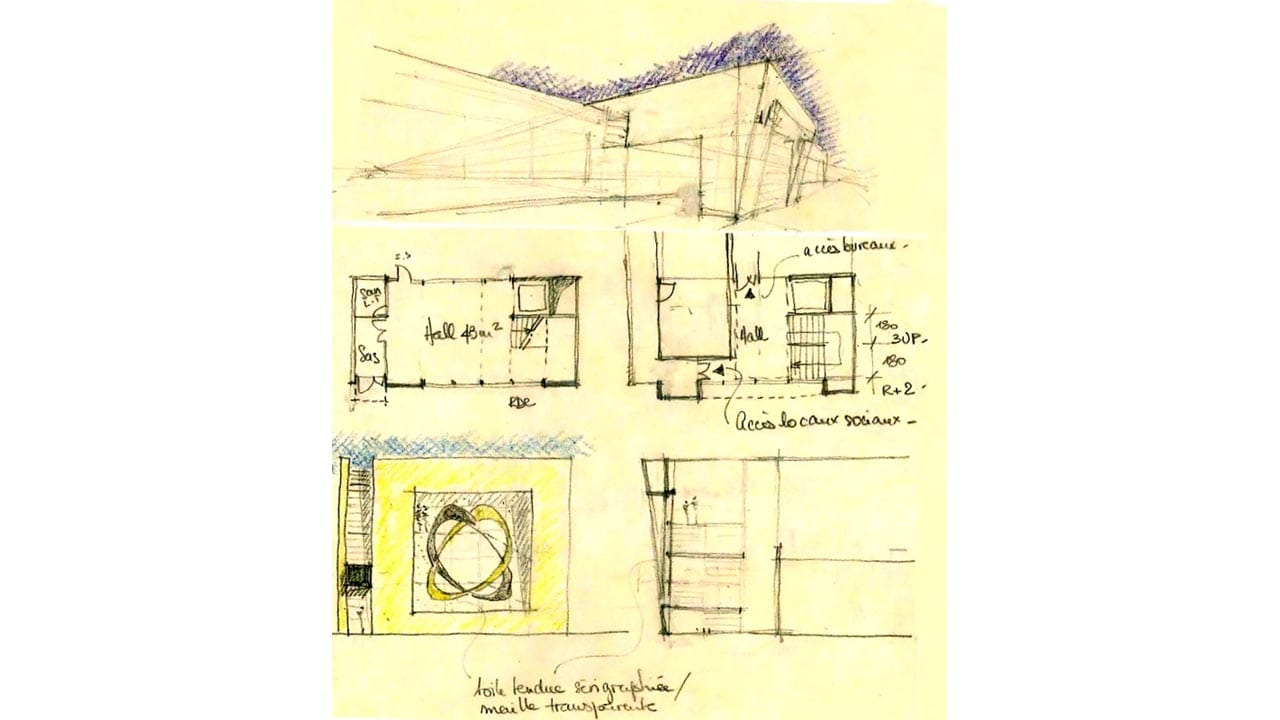 accès bureaux -
San
Hall 48m²
Sas
RDC
Hall
180
3UP -
180
R+2 -
Accès locaux sociaux -
toile tendue sérigraphiée/
maille transparente